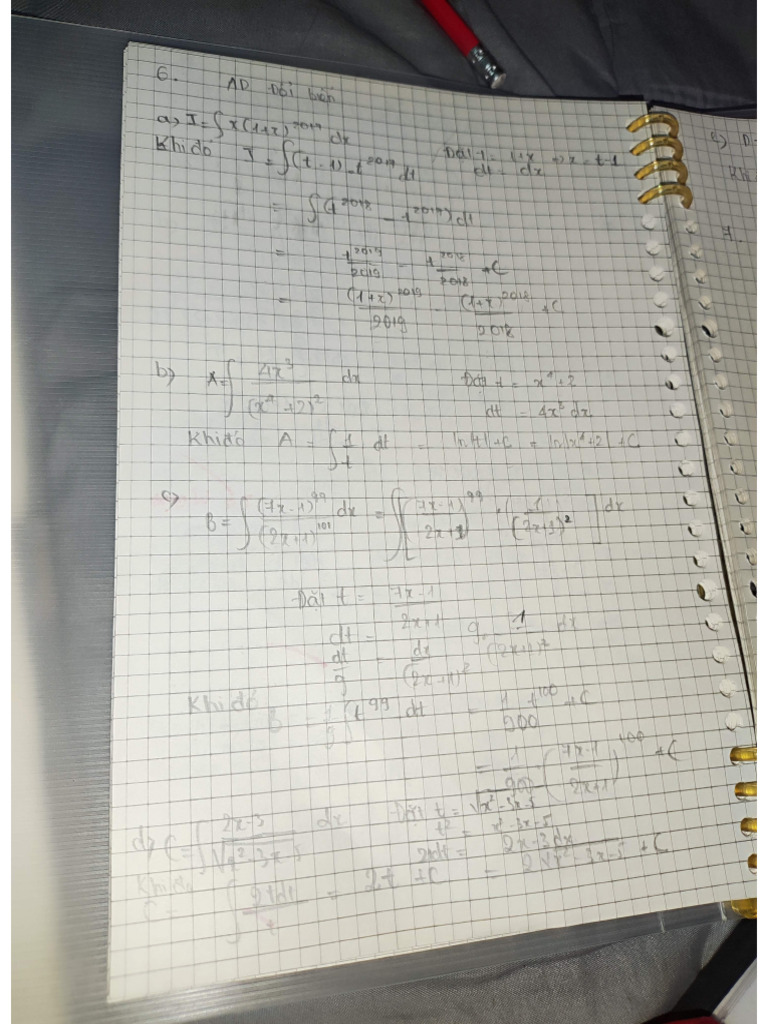 6. AD Đổi biến
a) I = ∫ x(1+x)^2017 dx
Đặt t = 1+x => x = t-1
Khi đó I = ∫ (t-1) t^2017 dt
dt = dx
= ∫ (t^2018 - t^2017) dt
= t^2019/2019 - t^2018/2018 + C
= (1+x)^2019/2019 - (1+x)^2018/2018 + C
b) A = ∫ 4x^3/(x^4+2)^2 dx
Đặt t = x^4+2
dt = 4x^3 dx
Khi đó A = ∫ 1/t dt = ln|t|+C = ln|x^4+2| + C
c) B = ∫ (7x-1)^99/(2x+1)^101 dx = ∫ [(7x-1)^99/2x+1 · 1/(2x+1)^2] dx
Đặt t = 7x-1/2x+1
dt = 9 · 1/(2x+1)^2 dx
dt/9 = dx/(2x+1)^2
Khi đó B = 1/9 ∫ t^99 dt = 1/900 t^100 + C
= 1/900 (7x-1/2x+1)^100 + C
d) C = ∫ 2x-3/√x^2-3x-5 dx
Đặt t = √x^2-3x-5
t^2 = x^2-3x-5
2tdt = 2x-3dx
Khi đó
C = ∫ 2tdt/t = 2t + C = 2√x^2-3x-5 + C
c) Đ
Khi
7.